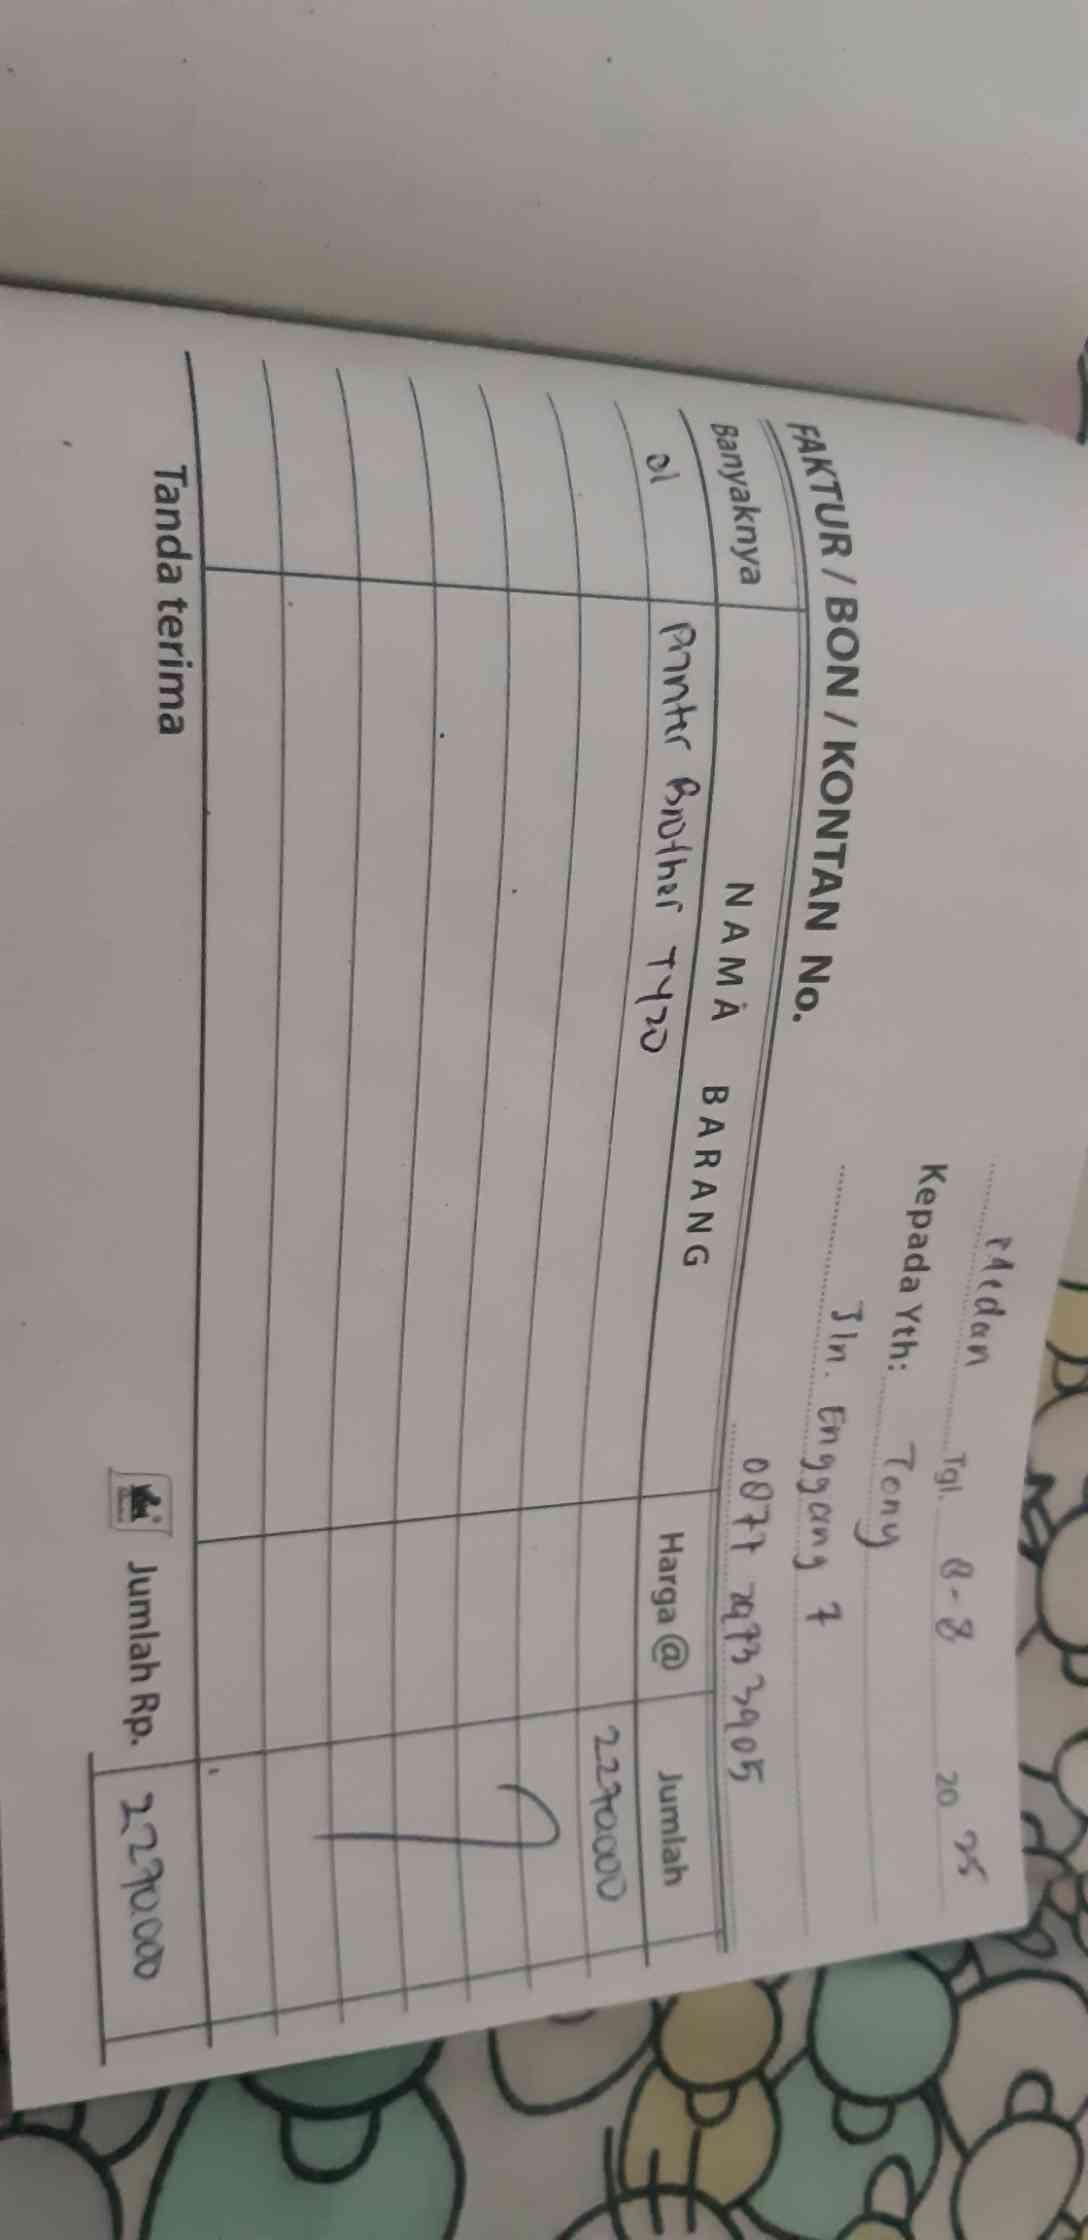 Medan Tgl. 8-8 2025
Kepada Yth: Tony
Jln. Enggang 7
0877 2973 3905
FAKTUR / BON / KONTAN No.
Banyaknya NAMA BARANG Harga @ Jumlah
01 Printer Brother T420 2290.000
Tanda terima Jumlah Rp. 2290.000